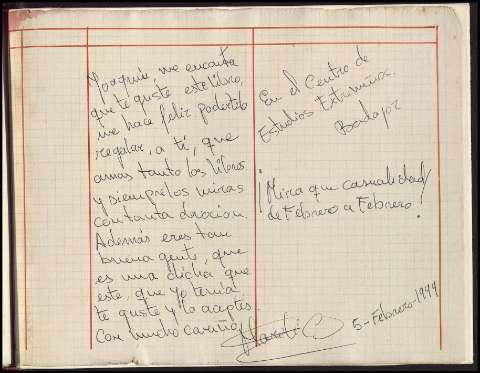 Joaquín, me encanta
que te guste este libro,
me hace feliz podertelo
regalar, a tí, que
amas tanto los libros
y siempre los miras
con tanta devoción.
Además eres tan
buena gente, que
es una dicha que
este, que yo tenía
te guste y lo aceptes
Con mucho cariño
En el Centro de
Estudios Extremeños.
Badajoz
¡Mira que casualidad
de Febrero a Febrero!
5-Febrero-1999